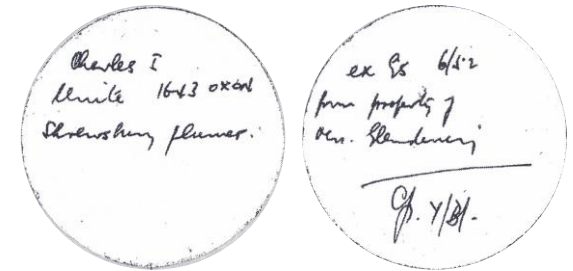 Charles I
Unite 1643 oxon
Shrewsbury plumes.
ex Gs 6/52
from property of
Glendening